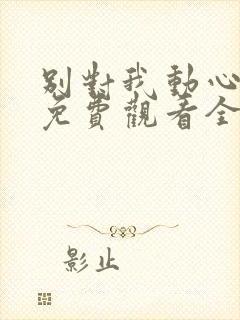 別對我動心
免費觀看全
影止